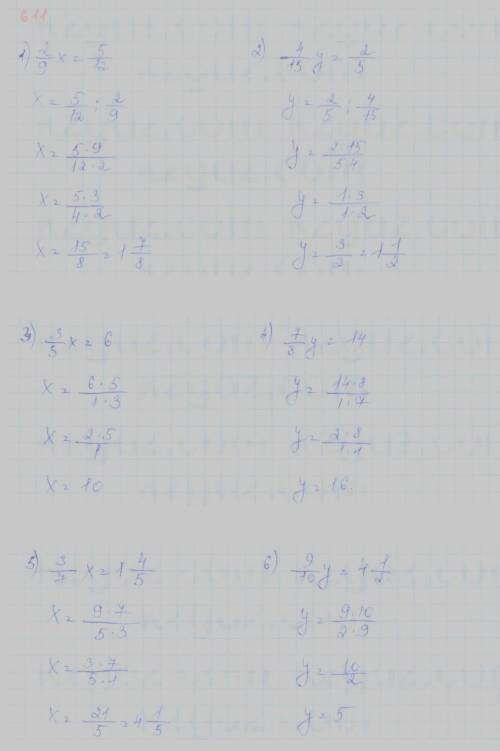 611
1) 2/9 x = 5/12
x = 5/12 : 2/9
x = 5·9/12·2
x = 5·3/4·2
x = 15/8 = 1 7/8
2) 4/15 y = 2/5
y = 2/5 : 4/15
y = 2·15/5·4
y = 1·3/1·2
y = 3/2 = 1 1/2
3) 3/5 x = 6
x = 6·5/1·3
x = 2·5/1
x = 10
4) 7/8 y = 14
y = 14·8/1·7
y = 2·8/1·1
y = 16.
5) 3/7 x = 1 4/5
x = 9·7/5·3
x = 3·7/5·1
x = 21/5 = 4 1/5
6) 9/10 y = 4 1/2
y = 9·10/2·9
y = 10/2
y = 5